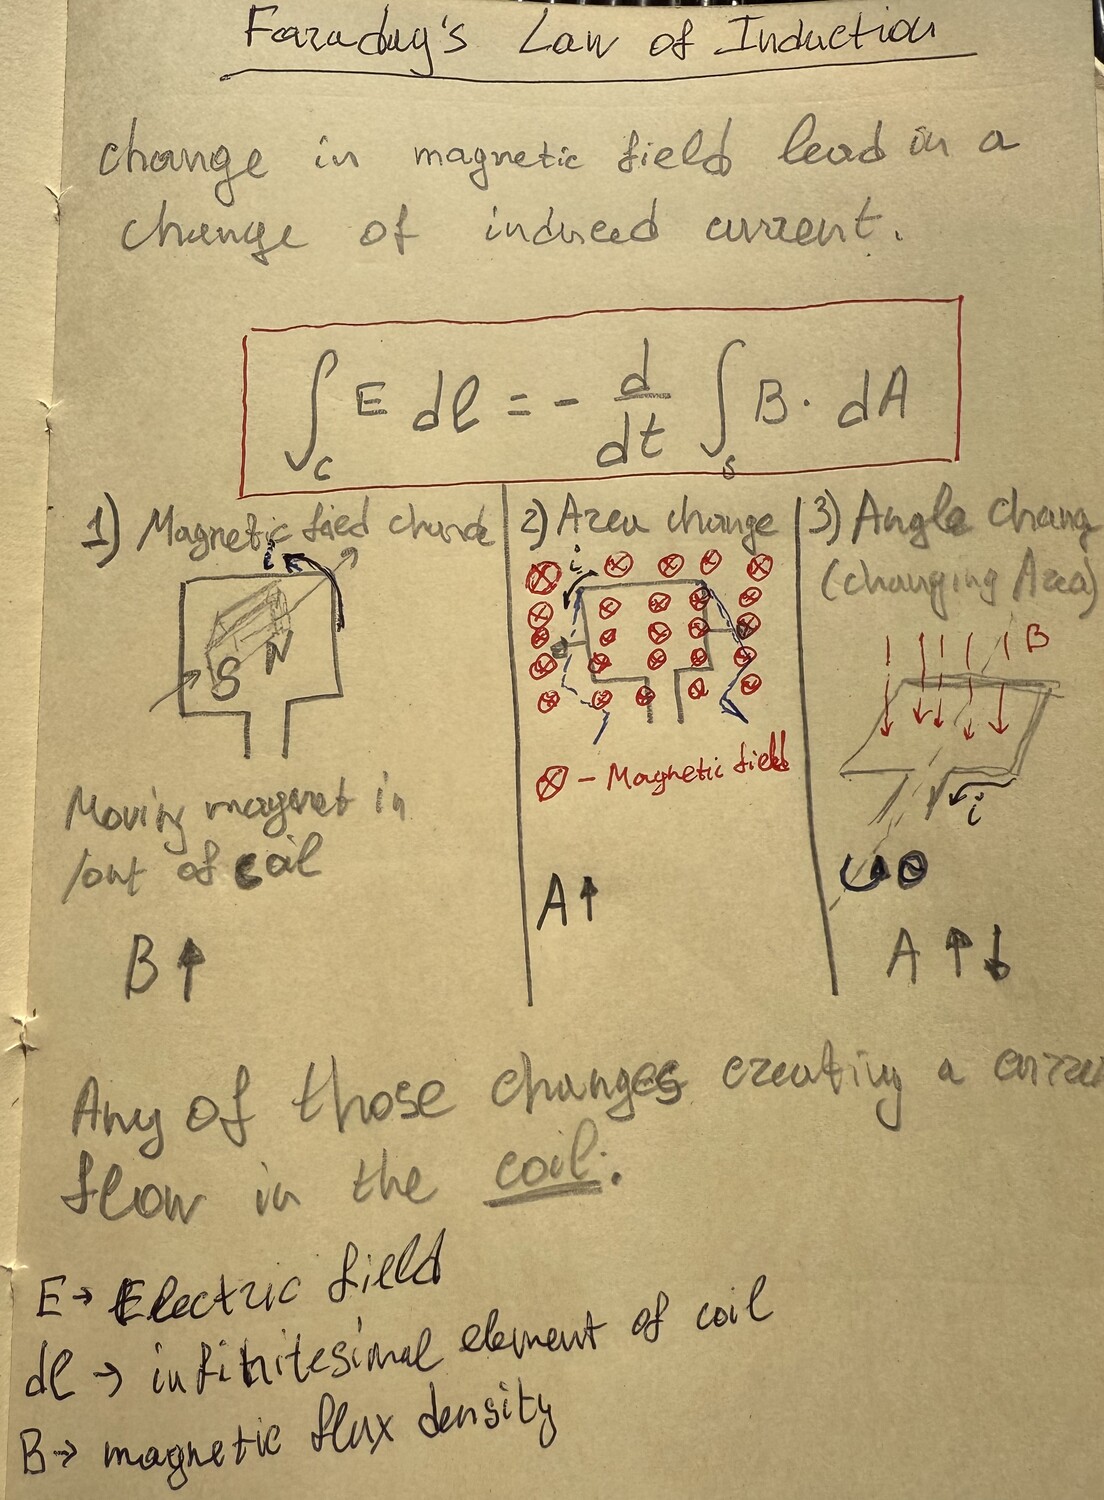 Faraday's Law of Induction
change in magnetic field lead in a
change of induced current.
∫_C E dl = - d/dt ∫_S B · dA
1) Magnetic fied
i
S N
Moving magnet in
/out of coil
B ↑
2) Area change
i
⊗ - Magnetic field
A ↑
3) Angle chang
(changing Area)
B
i
θ
A ↑ ↓
Any of those changes creating a
flow in the coil.
E → Electric field
dl → infinitesimal element of coil
B → magnetic flux density